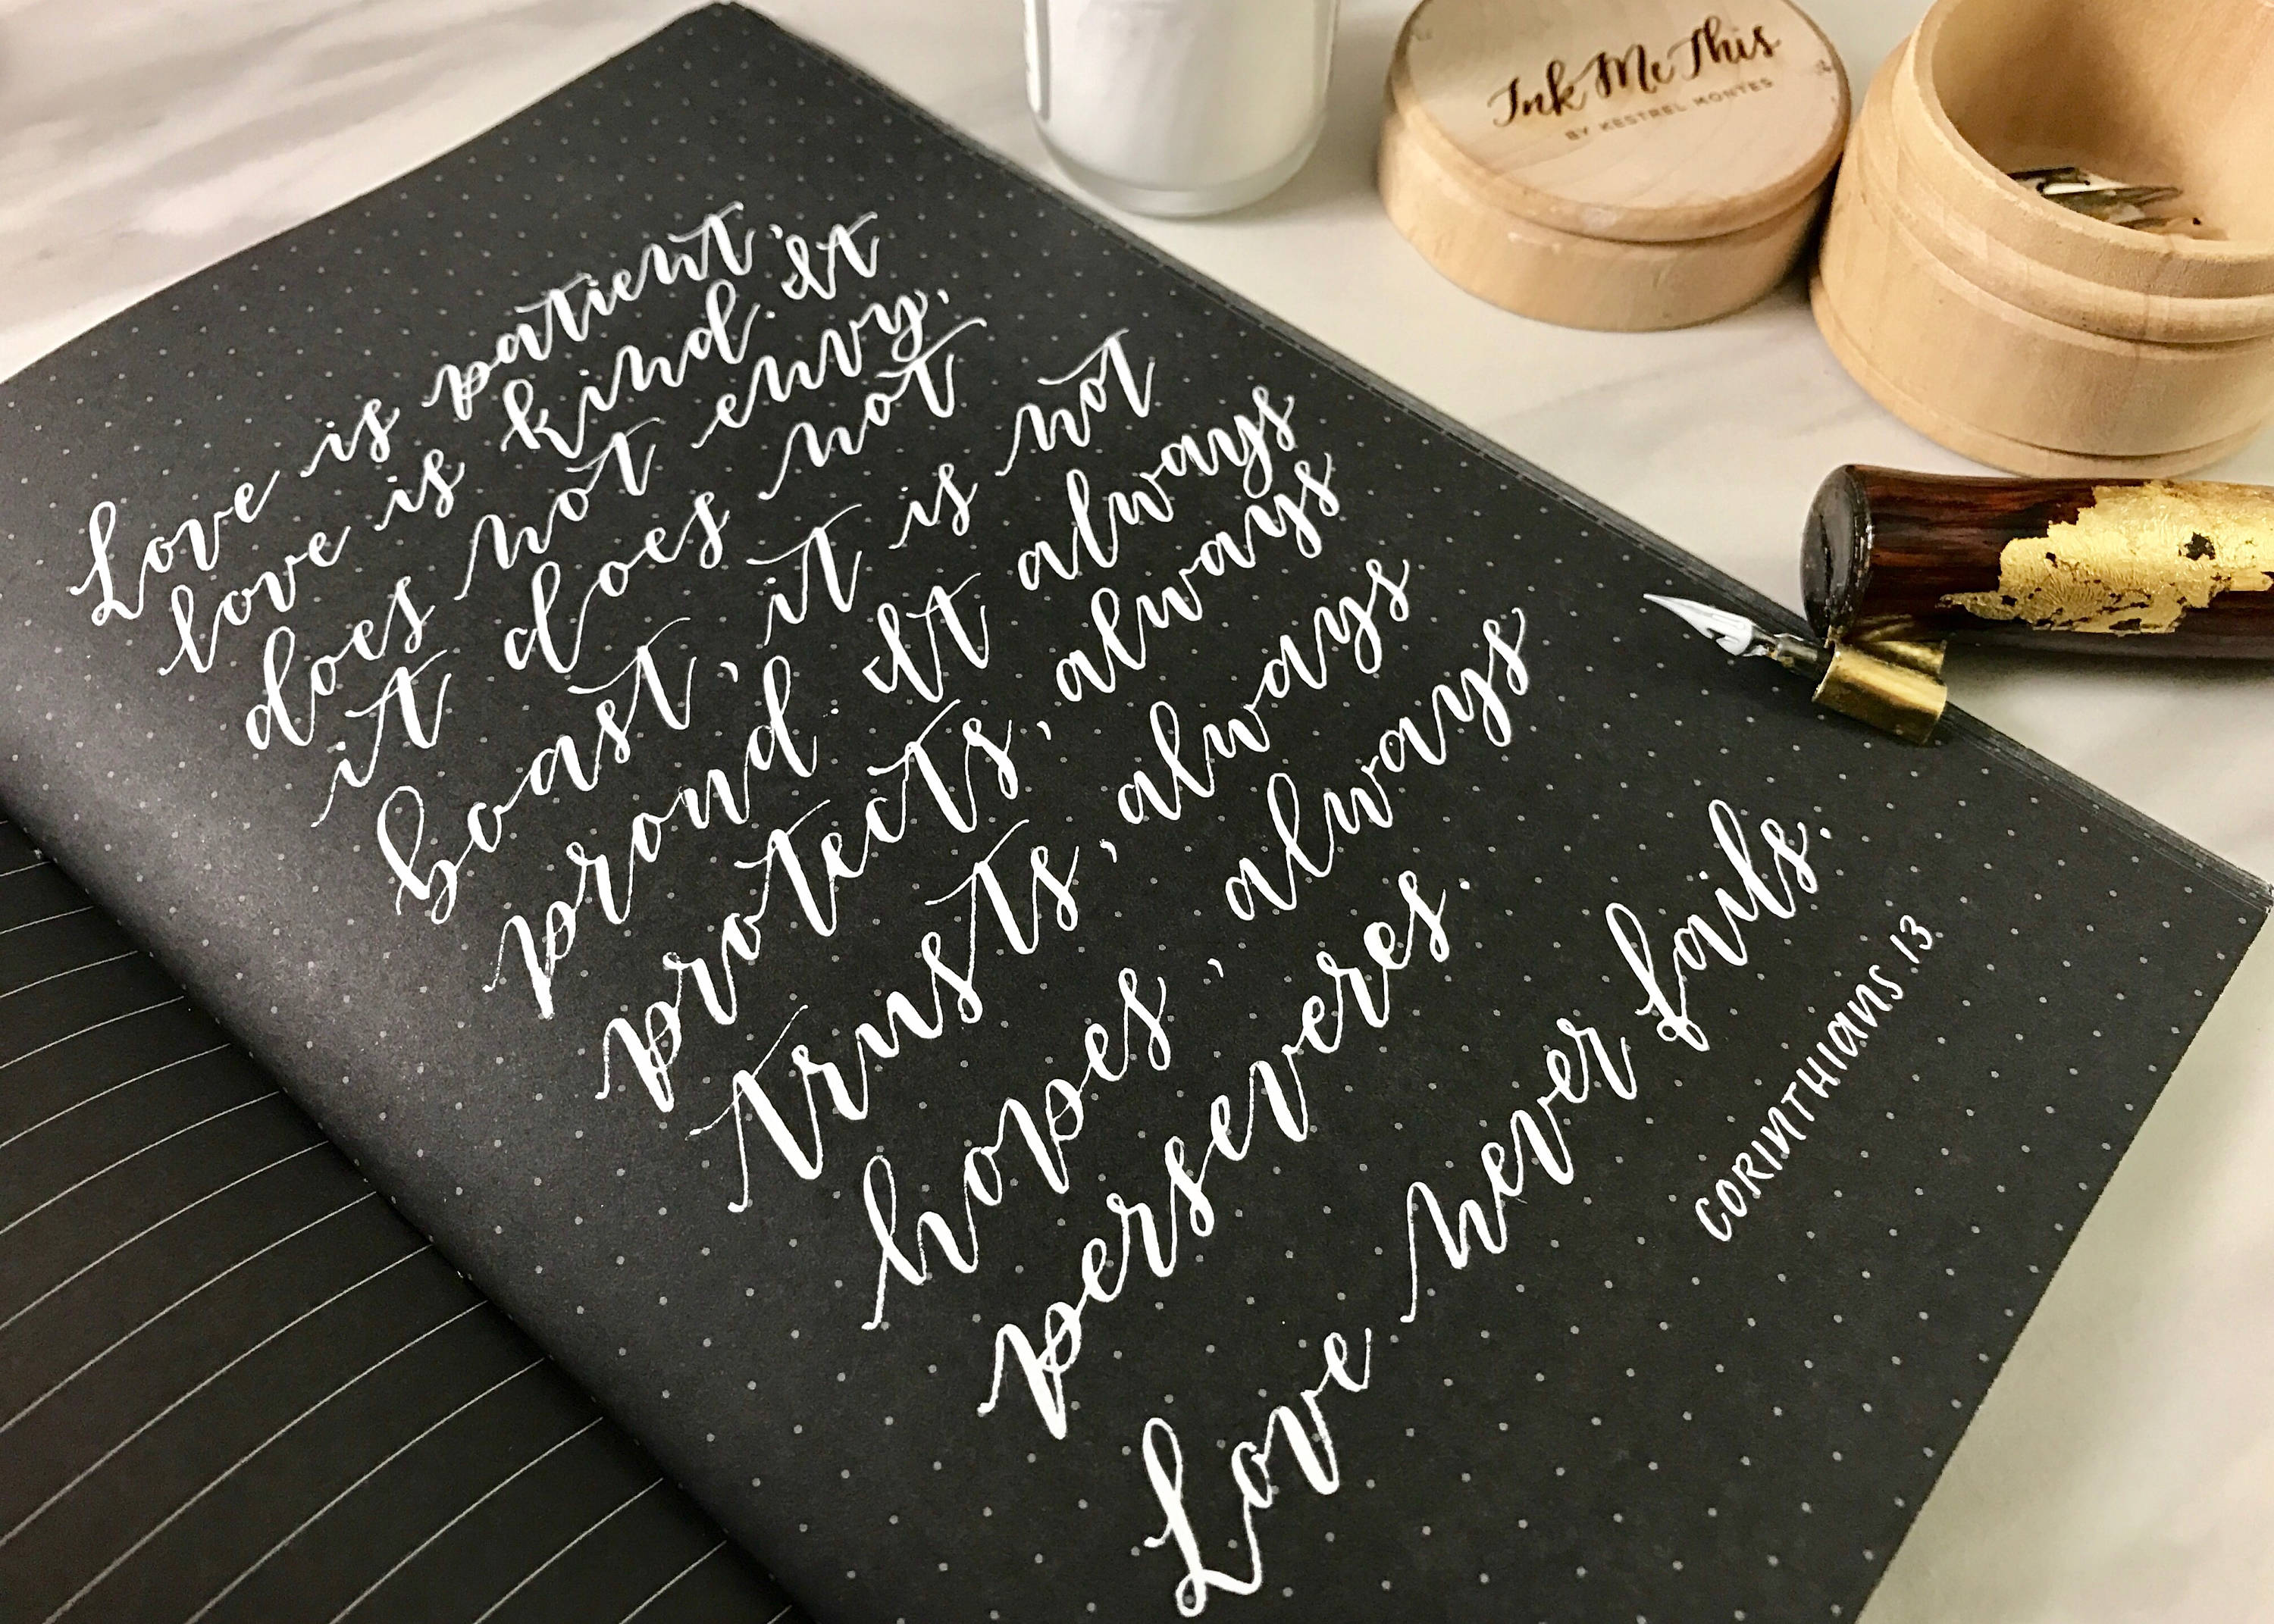 Ink Me This
BY KESTREL MONTES
Love is patient,
love is kind. It
does not envy,
it does not
boast, it is not
proud. It always
protects, always
trusts, always
hopes, always
perseveres.
Love never fails.
CORINTHIANS 13